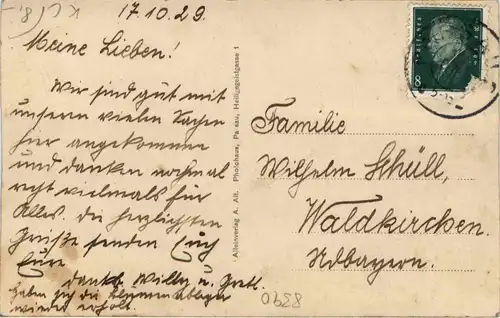 17.10.29.
Meine Lieben!
Wir sind gut mit
unseren vielen Sachen
hier angekommen
und danken nochmal
recht vielmals für
Alles. Die herzlichsten
Grüße senden Euch
Eure
dankb. Willy u. Gretl.
Haben sich die
wieder erholt.
Alleinverlag A. Alb. Photohaus, Passau, Heiliggeistgasse 1
8
Familie
Wilhelm Schüll,
Waldkirchen.
Ndbayern.
8390